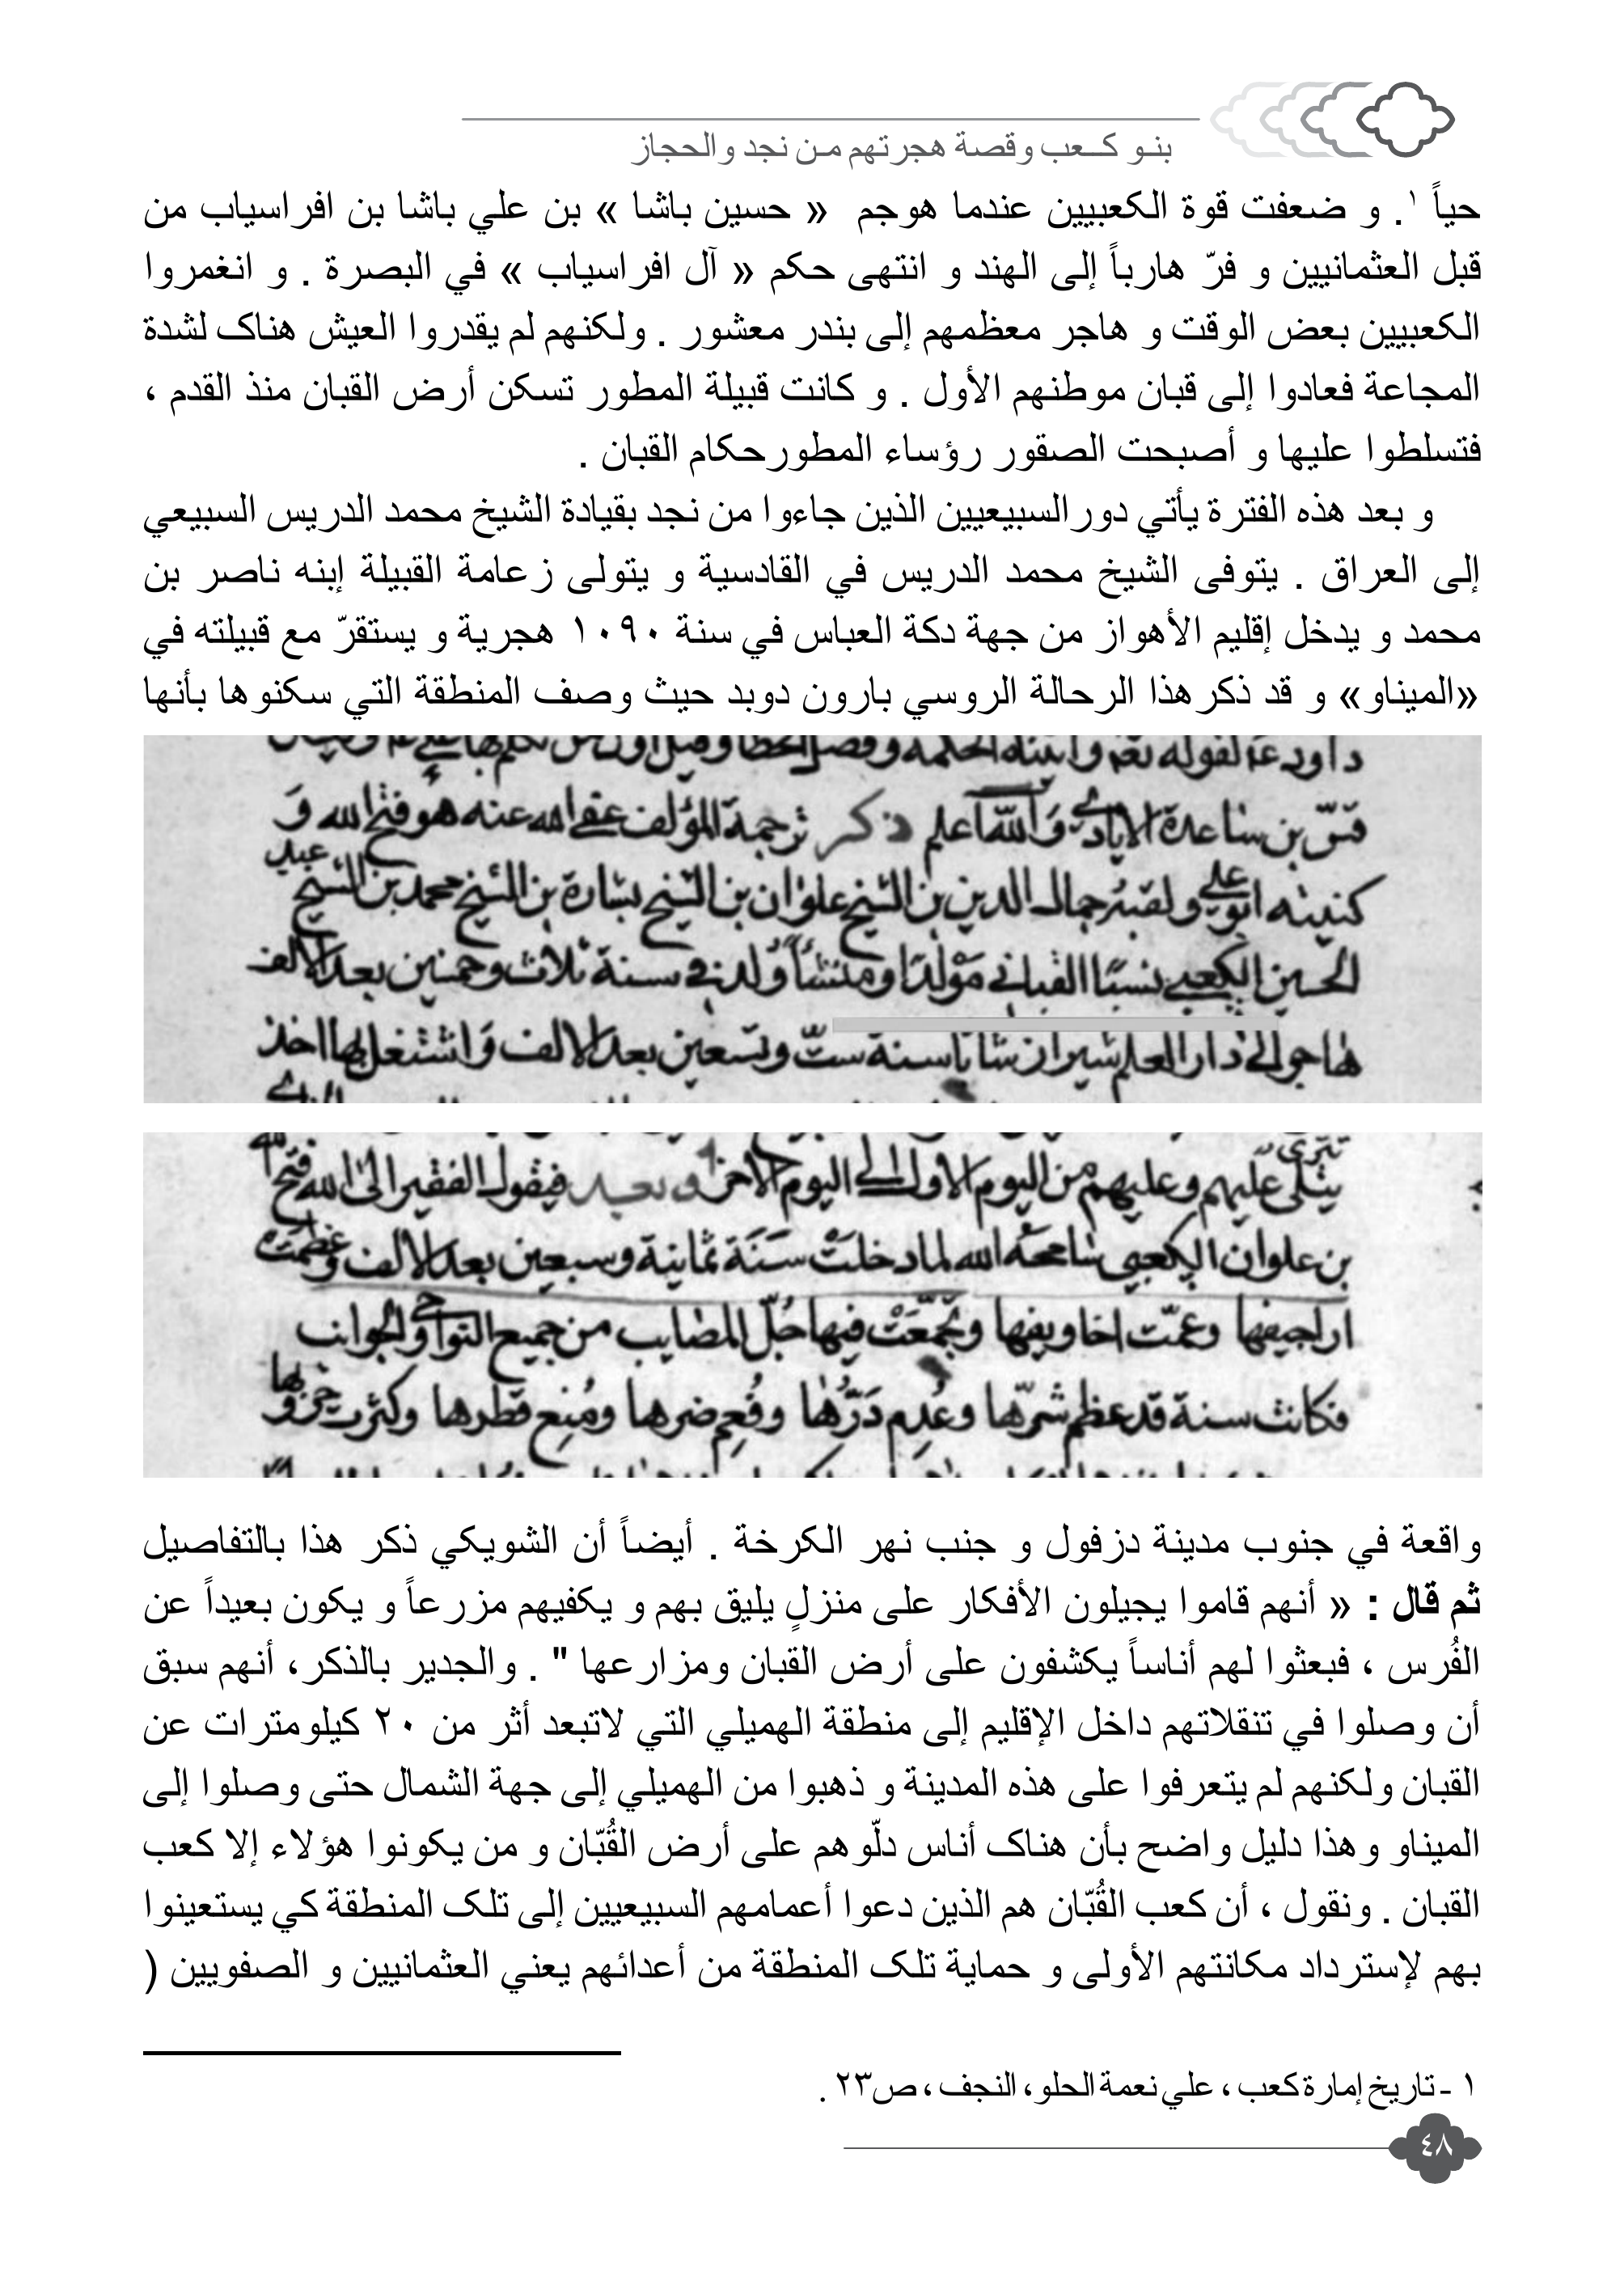 بنو كعب وقصة هجرتهم من نجد والحجاز
حياً ١. و ضعفت قوة الكعبيين عندما هوجم « حسين باشا » بن علي باشا بن افراسياب من
قبل العثمانيين و فرّ هارباً إلى الهند و انتهى حكم « آل افراسياب » في البصرة . و انغمروا
الكعبيين بعض الوقت و هاجر معظمهم إلى بندر معشور . ولكنهم لم يقدروا العيش هناک لشدة
المجاعة فعادوا إلى قبان موطنهم الأول . و كانت قبيلة المطور تسكن أرض القبان منذ القدم ،
فتسلطوا عليها و أصبحت الصقور رؤساء المطورحكام القبان .
و بعد هذه الفترة يأتي دورالسبيعيين الذين جاءوا من نجد بقيادة الشيخ محمد الدريس السبيعي
إلى العراق . يتوفى الشيخ محمد الدريس في القادسية و يتولى زعامة القبيلة إبنه ناصر بن
محمد و يدخل إقليم الأهواز من جهة دكة العباس في سنة ١٠٩٠ هجرية و يستقرّ مع قبيلته في
«الميناو» و قد ذكرهذا الرحالة الروسي بارون دوبد حيث وصف المنطقة التي سكنوها بأنها
قسّ بن ساعدة الايادي والله اعلم ذكر ترجمة المؤلف عفى الله عنه هو فتح الله و
كنيته ابو علي ولقبه جمال الدين بن الشيخ علوان بن الشيخ بشارة بن الشيخ محمد بن الشيخ عبد
الحسين الكعبي نسبًا القباني مولدًا ومنشأً ولد في سنة ثلاث وخمسين بعد الالف
هاجر الى دار العلم شيراز شابا سنة ستّ وتسعين بعد الالف واشتغل بها اخذ
تترى
يتلى عليهم وعليهم من اليوم الاول الى اليوم الاخر وبعد فيقول الفقير الى الله فتح الله
بن علوان الكعبي سامحه الله لما دخلت سنة ثمانية وسبعين بعد الالف وعظمت
اراجيفها وعمّت اخاويفها وتجمّعت فيها جُلّ المصايب من جميع النواحي والجوانب
فكانت سنة قد عظم شرّها وعُدِم دَرُّها وفُعِم ضرها ومُنِع قطرها وكثرت
واقعة في جنوب مدينة دزفول و جنب نهر الكرخة . أيضاً أن الشويكي ذكر هذا بالتفاصيل
ثم قال : « أنهم قاموا يجيلون الأفكار على منزلٍ يليق بهم و يكفيهم مزرعاً و يكون بعيداً عن
الفُرس ، فبعثوا لهم أناساً يكشفون على أرض القبان ومزارعها " . والجدير بالذكر، أنهم سبق
أن وصلوا في تنقلاتهم داخل الإقليم إلى منطقة الهميلي التي لاتبعد أثر من ٢٠ كيلومترات عن
القبان ولكنهم لم يتعرفوا على هذه المدينة و ذهبوا من الهميلي إلى جهة الشمال حتى وصلوا إلى
الميناو وهذا دليل واضح بأن هناک أناس دلّوهم على أرض القُبّان و من يكونوا هؤلاء إلا كعب
القبان . ونقول ، أن كعب القُبّان هم الذين دعوا أعمامهم السبيعيين إلى تلک المنطقة كي يستعينوا
بهم لإسترداد مكانتهم الأولى و حماية تلک المنطقة من أعدائهم يعني العثمانيين و الصفويين (
١ - تاريخ إمارة كعب ، علي نعمة الحلو، النجف ، ص٢٣ .
٤٨